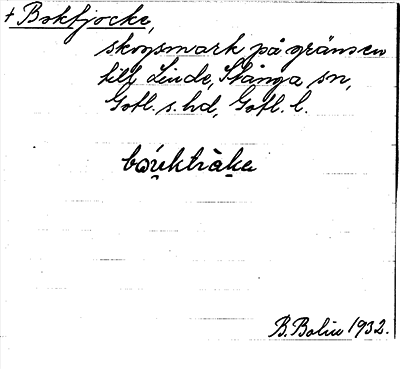 + Bokfjocke,
skogsmark på gränsen
till Linde, Stånga sn,
Gotl. s. hd, Gotl. l.
B. Bolin 1932.